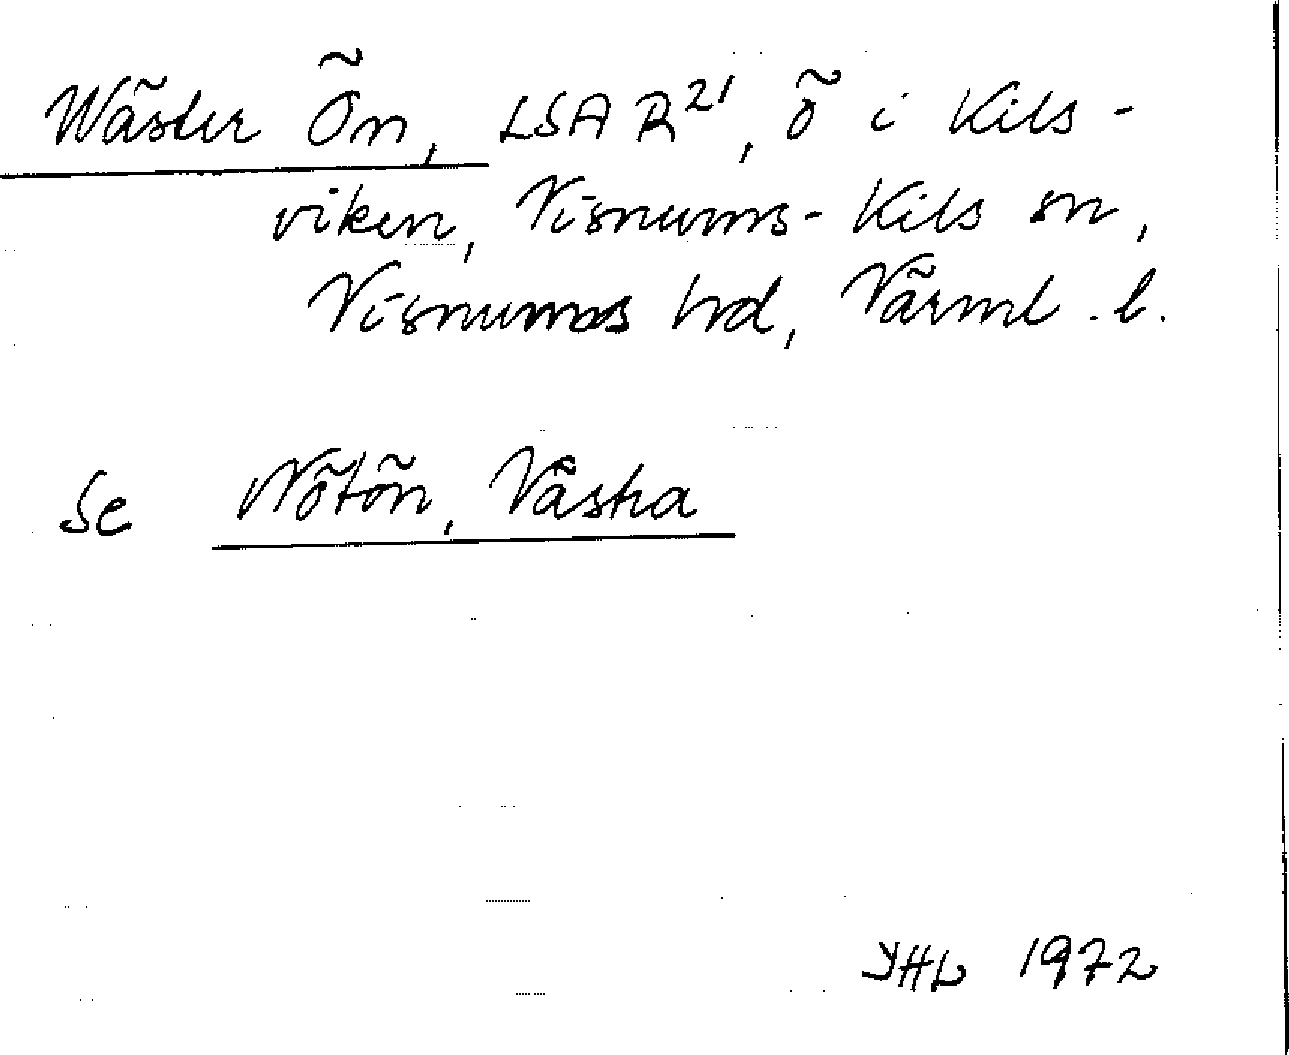 Wäster Ön, LSA R21, ö i Kils-
viken, Visnums-Kils sn,
Visnums hd, Värml. l.
Se Nötön, Västra
YHL 1972